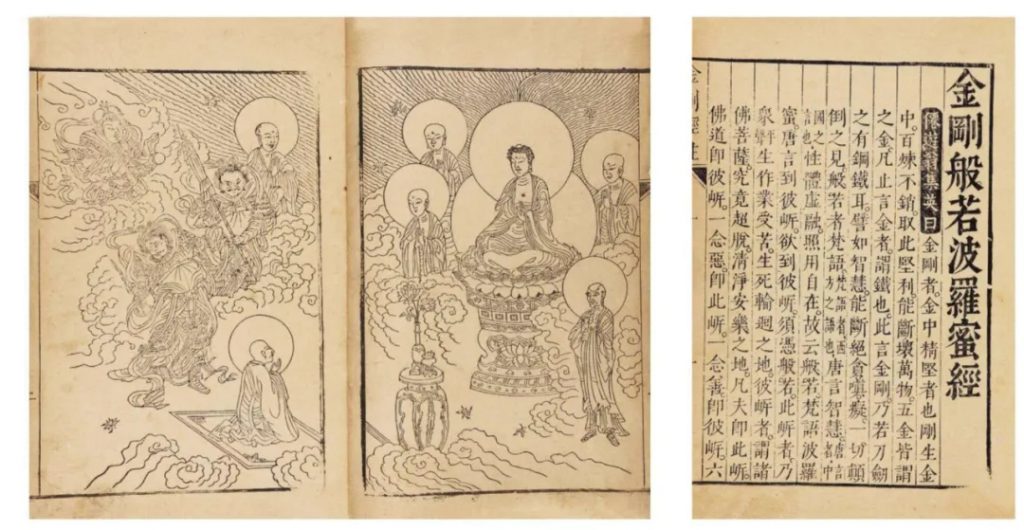 金剛般若波羅蜜經
僊遊翁集英曰金剛者金中精堅者也剛生金
中。百煉不銷。取此堅利。能斷壞萬物。五金皆謂
之金。凡止言金者。謂鐵也。此言金剛。乃若刀劒
之有鋼鐵耳。譬如智慧能斷絕貪嗔癡。一切顛
倒之見。般若者梵語。梵語者西方之語也唐言智慧。唐言者中
國之言也性體虛融。照用自在。故云般若。梵語波羅
蜜。唐言到彼岍。欲到彼岍。須憑般若。此岍者乃
衆生作業受苦。生死輪廻之地。彼岍者。謂諸
佛菩薩。究竟超脫。清淨安樂之地。凡夫即此岍。
佛道即彼岍。一念惡。即此岍。一念善即彼岍。六
金剛經註 一